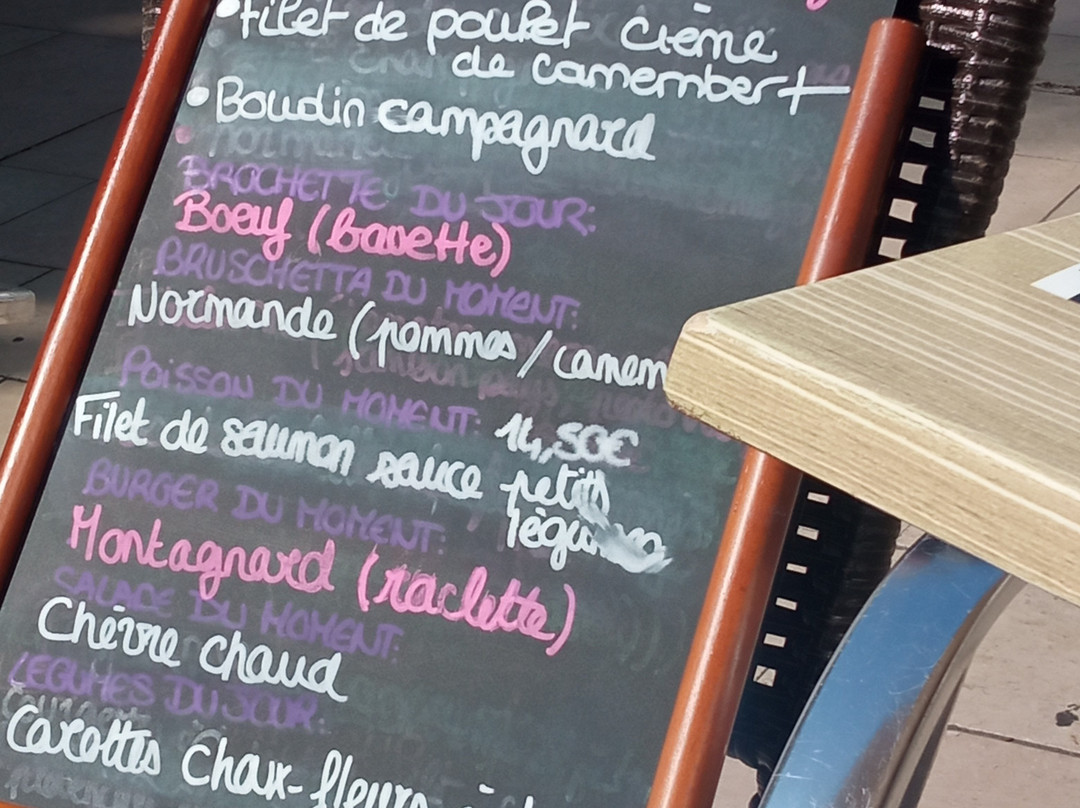 • Filet de poulet crème
de camembert
• Boudin campagnard
BROCHETTE DU JOUR:
Boeuf (bavette)
BRUSCHETTA DU MOMENT:
Normande (pommes/camem
POISSON DU MOMENT: 14,50€
Filet de saumon sauce petits
légumes
BURGER DU MOMENT:
Montagnard (raclette)
SALADE DU MOMENT:
Chèvre chaud
LEGUMES DU JOUR:
Carottes Choux-fleurs